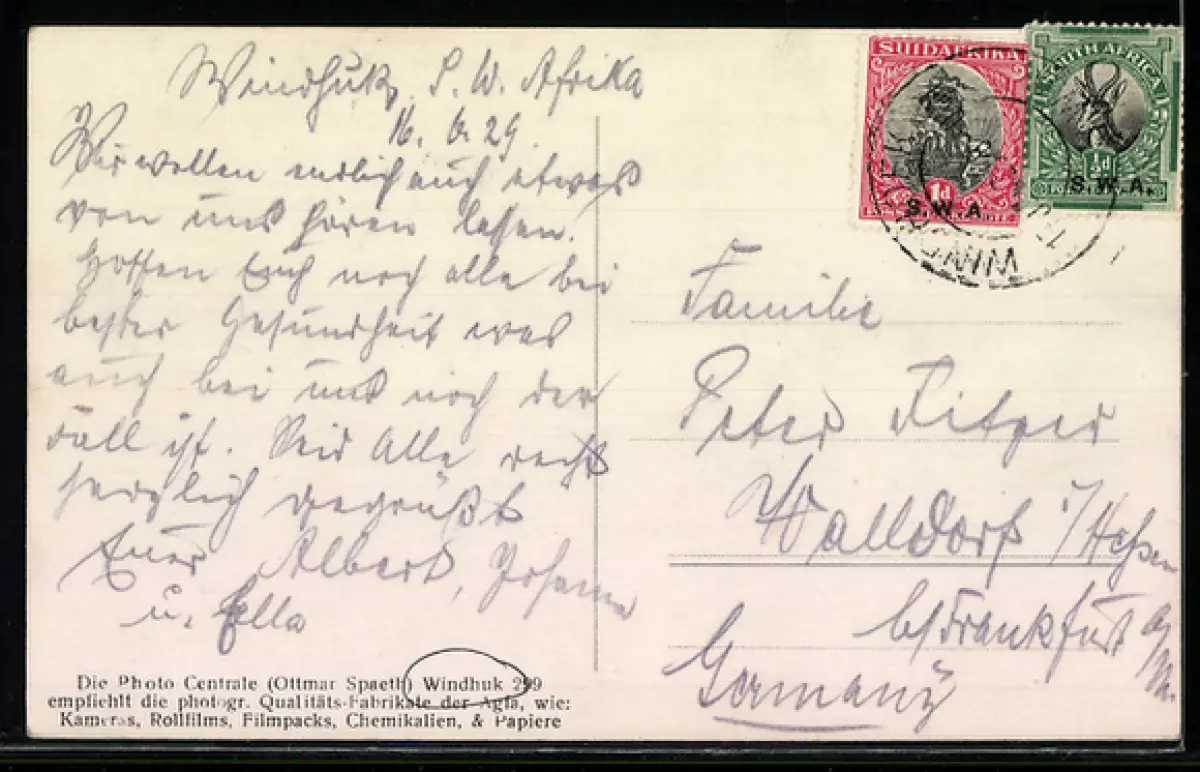 Windhuk, S. W. Afrika
16. 6. 29
Wir wollen endlich auch etwas
von uns hören lassen.
Hoffen Euch noch alle bei
bester Gesundheit was
auch bei uns noch der
Fall ist. Seid Alle recht
herzlich gegrüßt
Euer Albert, Johanna
u. Ella
Die Photo Centrale (Ottmar Spaeth) Windhuk 299
empfiehlt die photogr. Qualitäts-Fabrikate der Agfa, wie:
Kameras, Rollfilms, Filmpacks, Chemikalien, & Papiere
SUIDAFRIKA
1d
S.W.A.
SOUTH AFRICA
½d
S.W.A.
Familie
Peter
Walldorf i/Hessen
b/Frankfurt a/M.
Germany